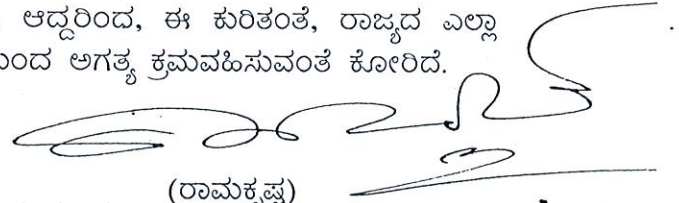 ಆದ್ದರಿಂದ, ಈ ಕುರಿತಂತೆ, ರಾಜ್ಯದ ಎಲ್ಲಾ
ಅಗತ್ಯ ಕ್ರಮವಹಿಸುವಂತೆ ಕೋರಿದೆ.
(ರಾಮಕೃಷ್ಣ)